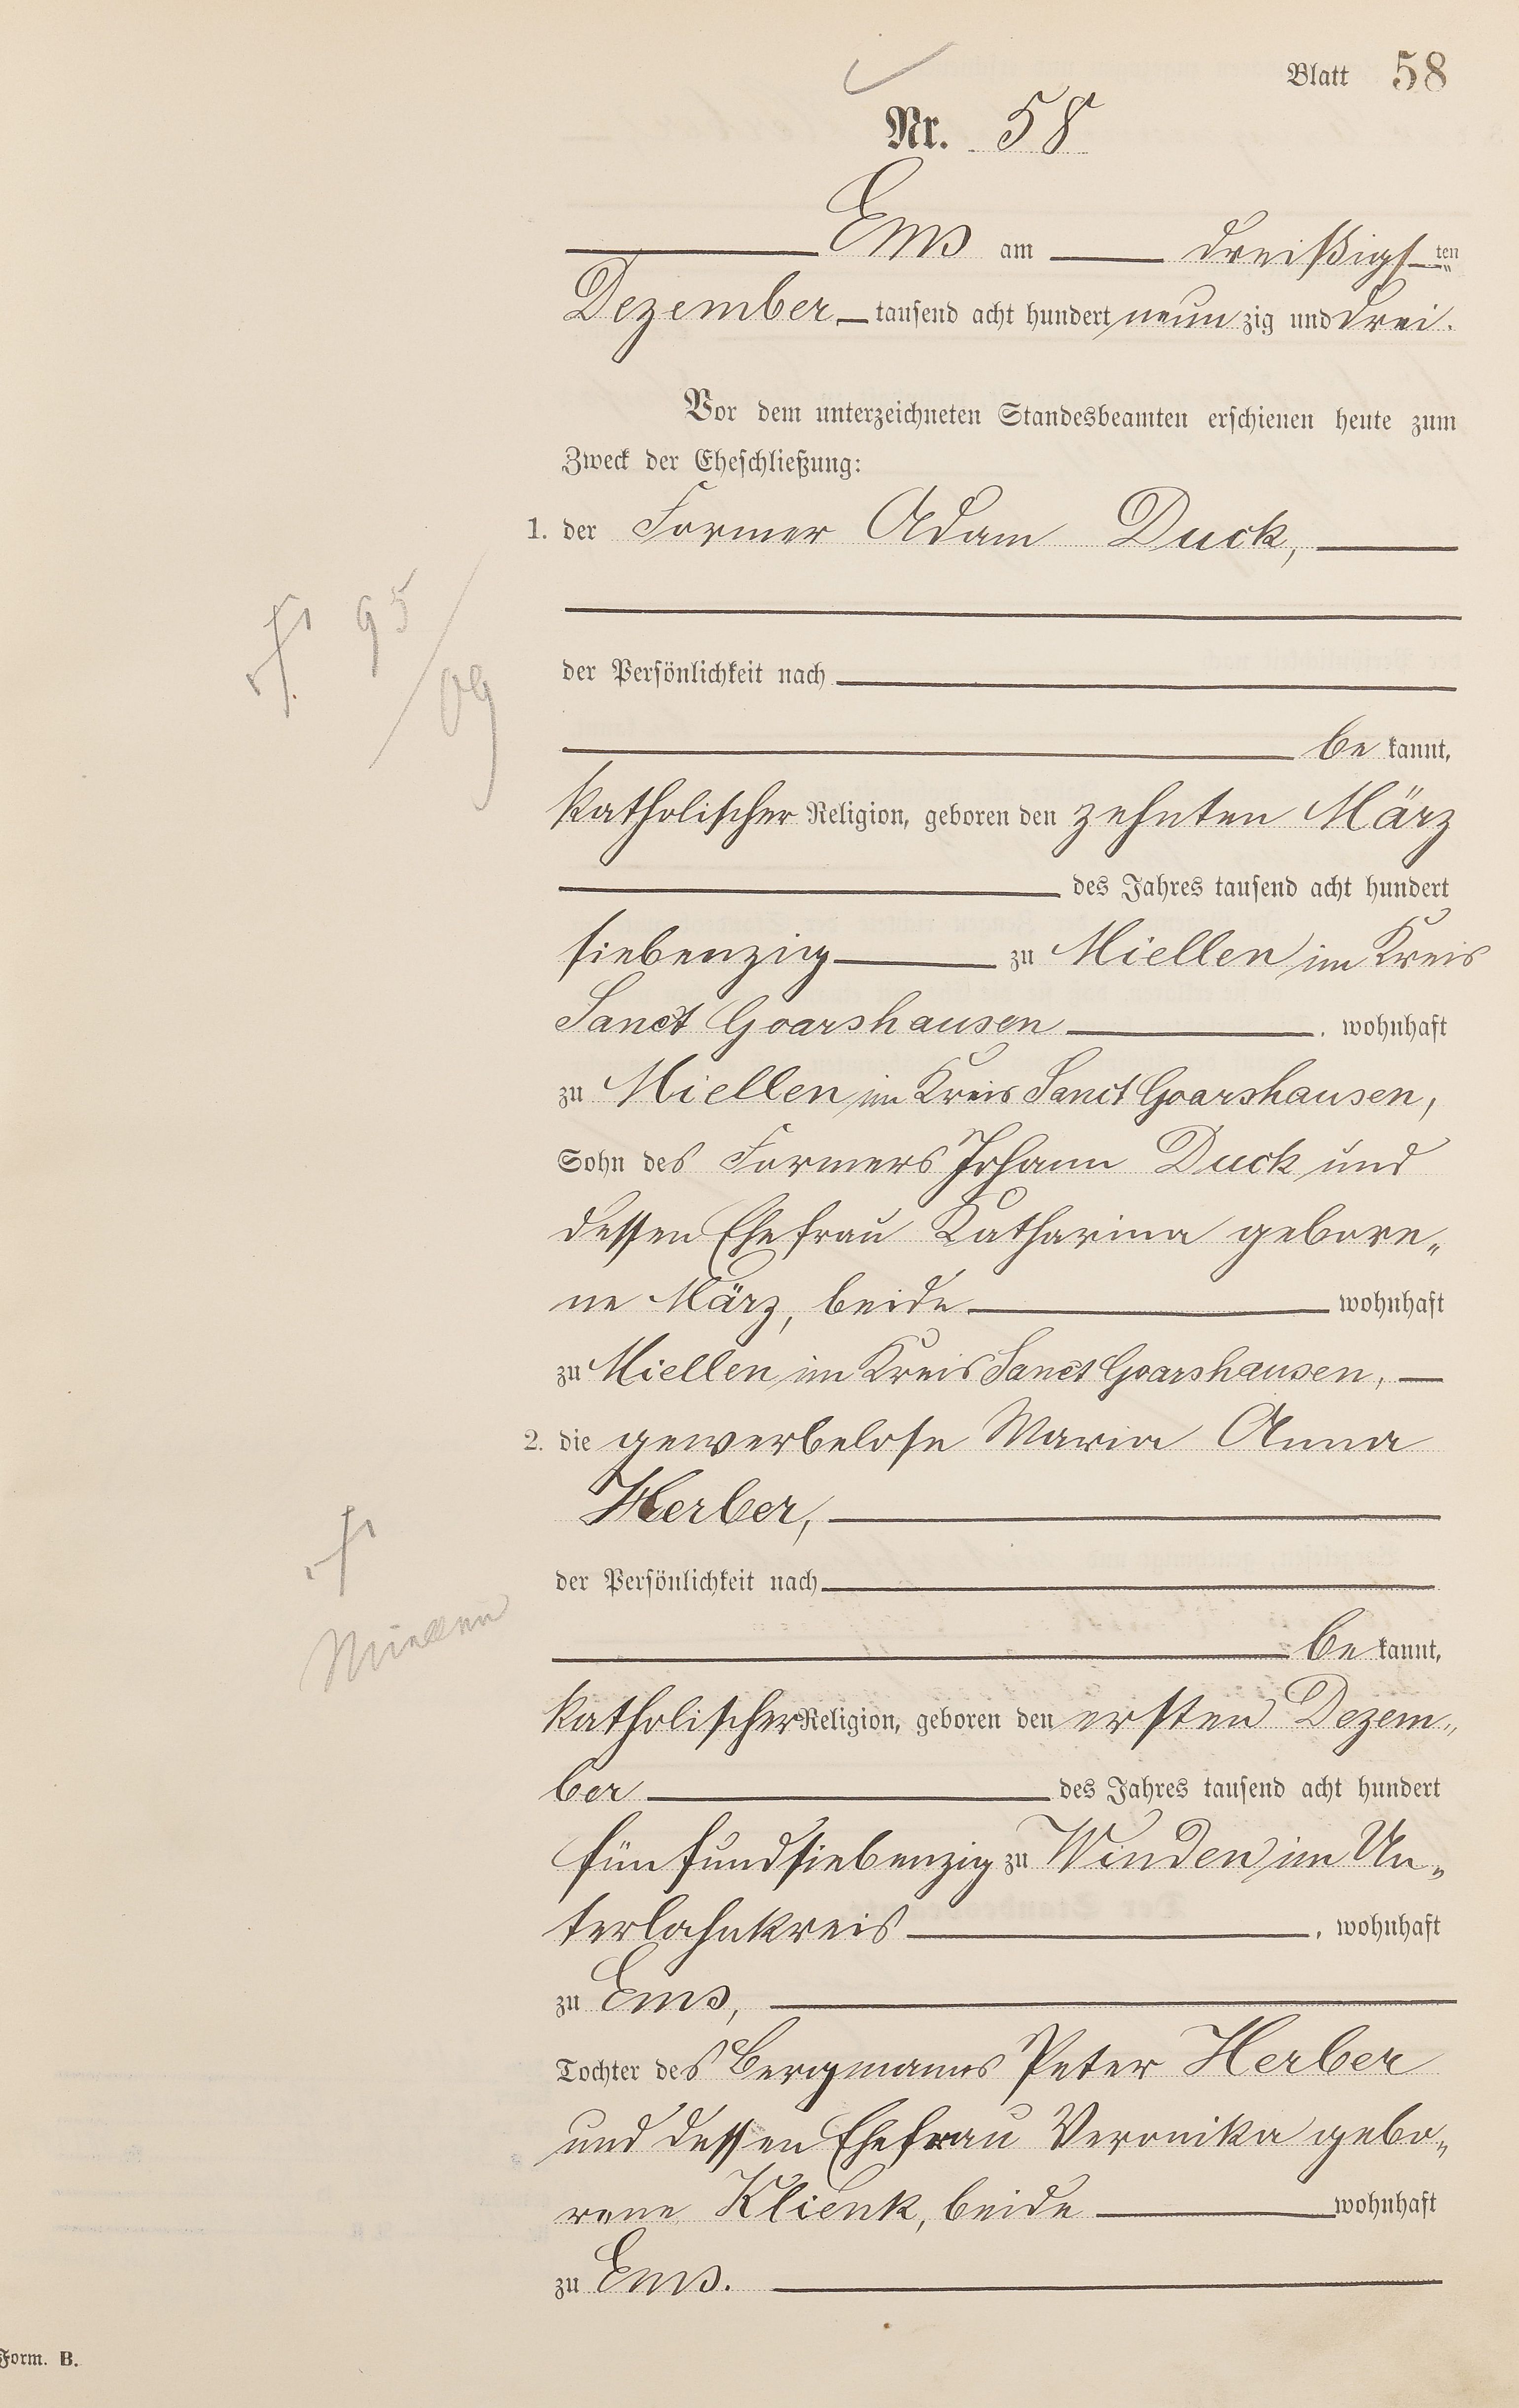 Blatt 58
Nr. 58
Ems am dreißigsten
Dezember tausend acht hundert neunzig und drei.
Vor dem unterzeichneten Standesbeamten erschienen heute zum
Zweck der Eheschließung:
1. der Former Adam Duck,
der Persönlichkeit nach
be kannt,
katholischer Religion, geboren den zehnten März
des Jahres tausend acht hundert
siebenzig zu Miellen im Kreis
Sanct Goarshausen, wohnhaft
zu Miellen im Kreis Sanct Goarshausen,
Sohn des Formers Johann Duck und
dessen Ehefrau Katharina gebore„
ne März, beide wohnhaft
zu Miellen im Kreis Sanct Goarshausen,
2. die gewerbelose Maria Anna
Herber,
der Persönlichkeit nach
be kannt,
katholischer Religion, geboren den ersten Dezem„
ber des Jahres tausend acht hundert
fünfundsiebenzig zu Winden im Un„
terlahnkreis, wohnhaft
zu Ems,
Tochter des Bergmanns Peter Herber
und dessen Ehefrau Veronika gebo„
rene Klienk, beide wohnhaft
zu Ems.
95/09
Form. B.